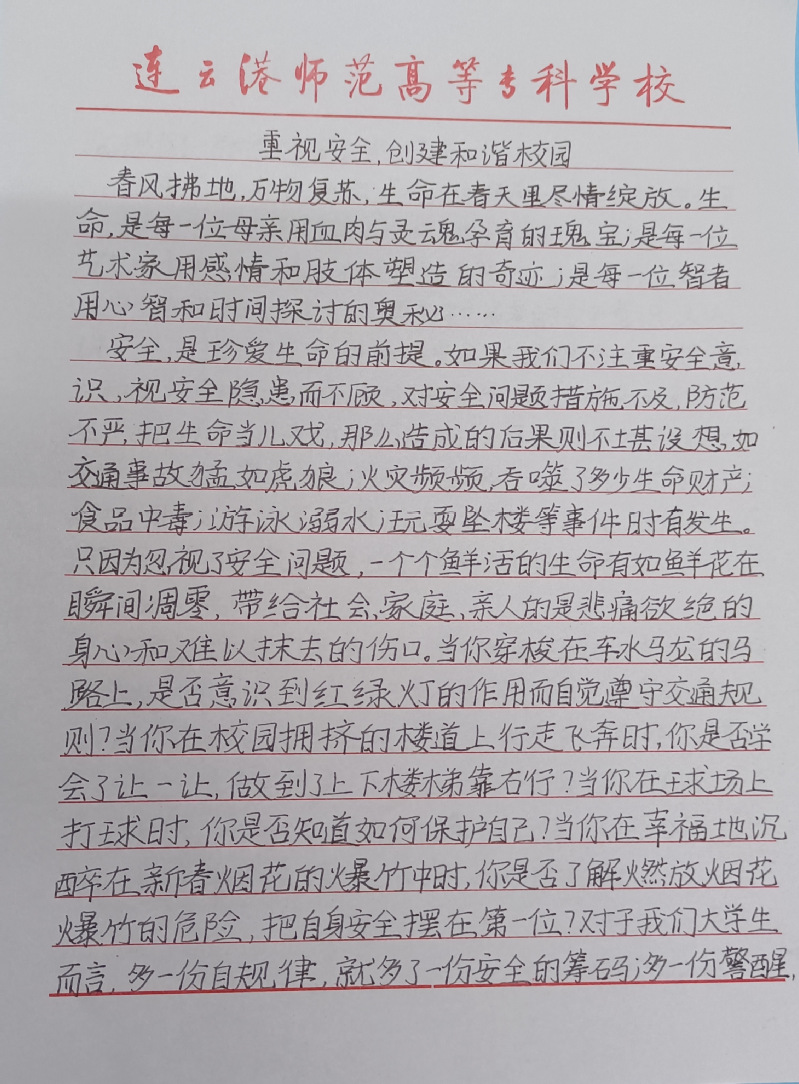 连云港师范高等专科学校
重视安全,创建和谐校园
春风拂地,万物复苏,生命在春天里尽情绽放。生
命,是每一位母亲用血肉与灵魂孕育的瑰宝;是每一位
艺术家用感情和肢体塑造的奇迹;是每一位智者
用心智和时间探讨的奥秘……
安全,是珍爱生命的前提。如果我们不注重安全意
识,视安全隐患而不顾,对安全问题措施不及,防范
不严,把生命当儿戏,那么造成的后果则不堪设想,如
交通事故猛如虎狼;火灾频频,吞噬了多少生命财产;
食品中毒;游泳溺水;玩耍坠楼等事件时有发生。
只因为忽视了安全问题,一个个鲜活的生命有如鲜花在
瞬间凋零,带给社会、家庭、亲人的是悲痛欲绝的
身心和难以抹去的伤口。当你穿梭在车水马龙的马
路上,是否意识到红绿灯的作用而自觉遵守交通规
则?当你在校园拥挤的楼道上行走飞奔时,你是否学
会了让一让,做到了上下楼梯靠右行?当你在球场上
打球时,你是否知道如何保护自己?当你在幸福地沉
醉在新春烟花的爆竹中时,你是否了解燃放烟花
爆竹的危险,把自身安全摆在第一位?对于我们大学生
而言,多一份自规律,就多了一份安全的筹码;多一份警醒,